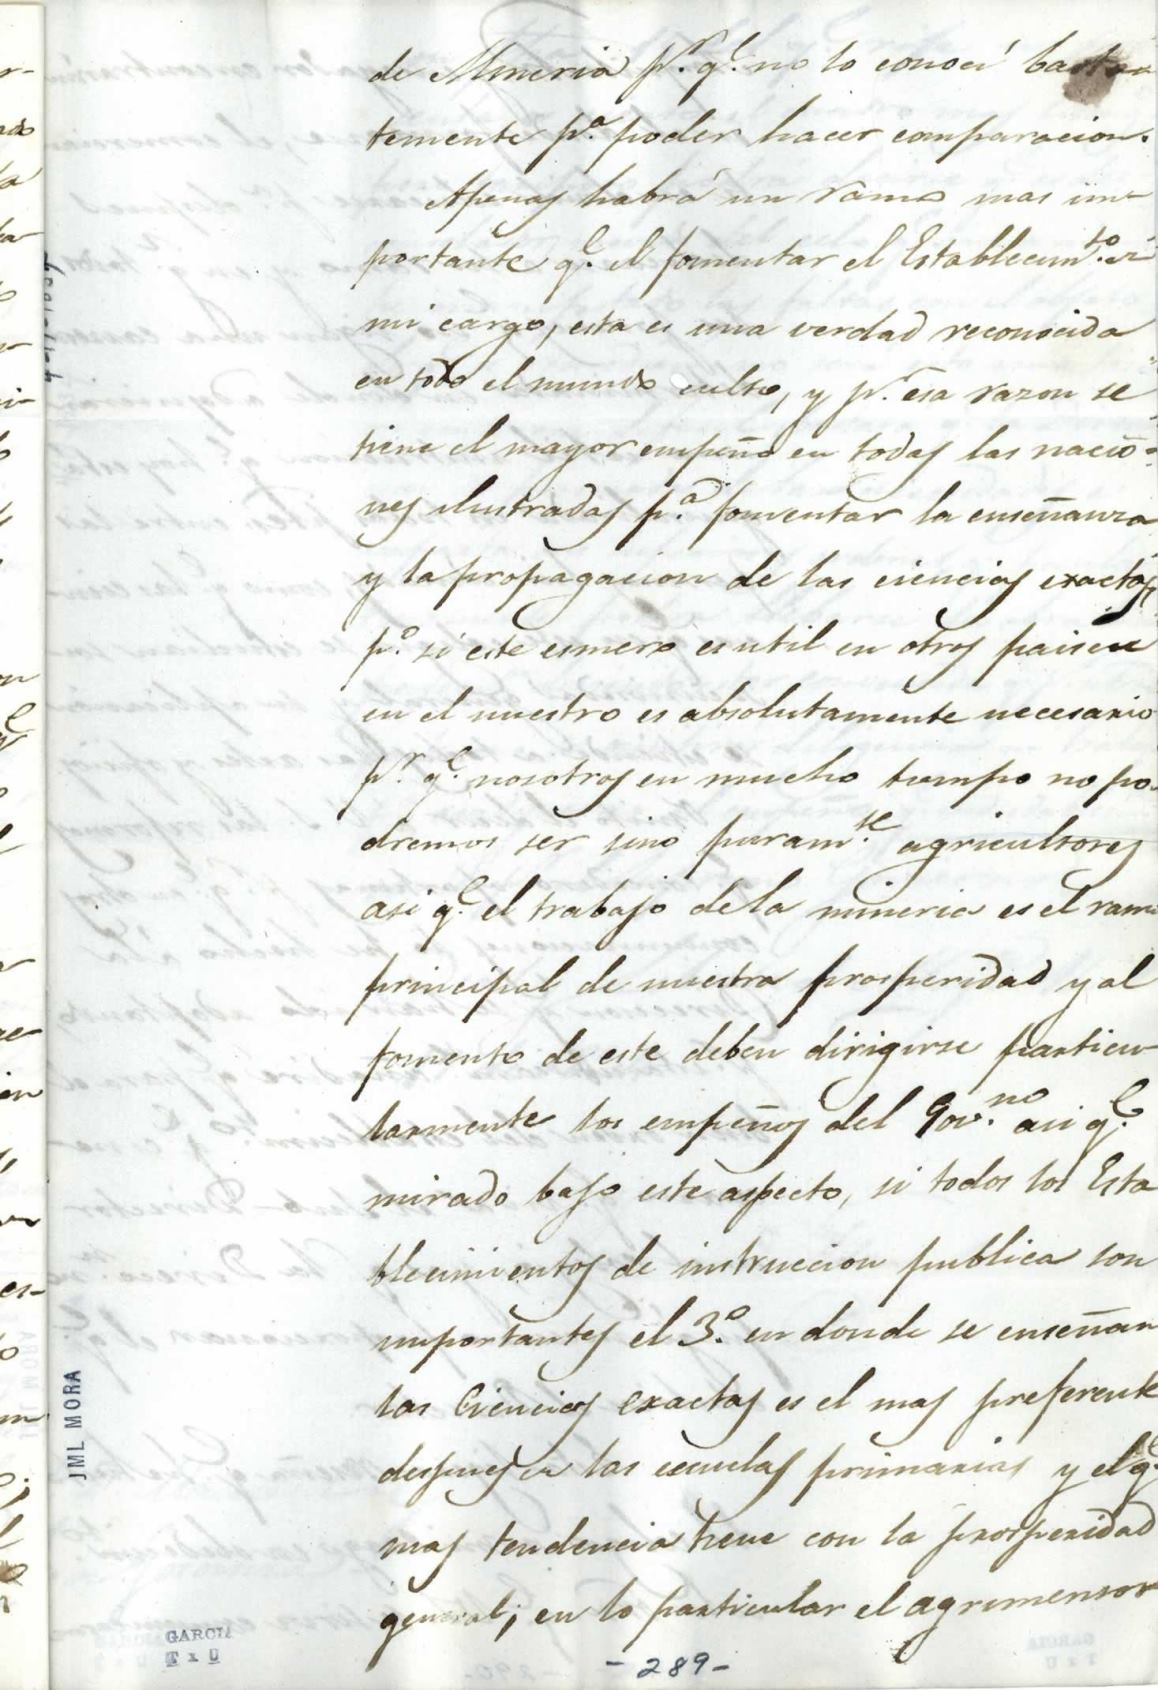 de Mineria pr. qe. no lo conocí bastan
temente pa. poder hacer comparacion.
Apenas habrá un ramo mas im-
portante qe. el fomentar el Establecimto. de
mi cargo, esta es una verdad reconocida
en todo el mundo culto, y pr. esa razon se
tiene el mayor empeño en todas las nacio-
nes ilustradas pa. fomentar la enseñanza
y la propagacion de las ciencias exactas,
po. si este esmero es util en otros paises
en el nuestro es absolutamente necesario
pr. qe. nosotros en mucho tiempo no po-
dremos ser sino puramte. agricultores
asi qe. el trabajo de la mineria es el ramo
principal de nuestra prosperidad y al
fomento de este deben dirigirse particu-
larmente los empeños del Govno. asi qe.
mirado bajo este aspecto, si todos los Esta
blecimientos de instruccion publica son
importantes el 3o. en donde se enseñan
las Ciencias exactas es el mas preferente
despues de las escuelas primarias y el qe.
mas tendencia tiene con la prosperidad
general; en lo particular el agrimensor
JML MORA
GARCIA
T x U
- 289 -